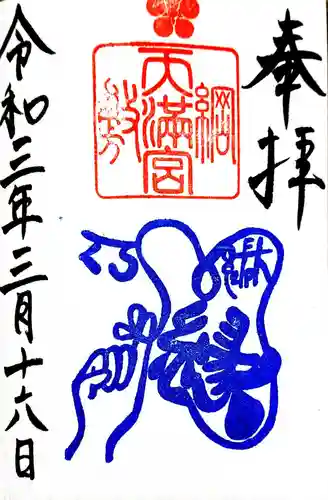 奉拝
綱敷天満宮
縁
令和三年三月十六日